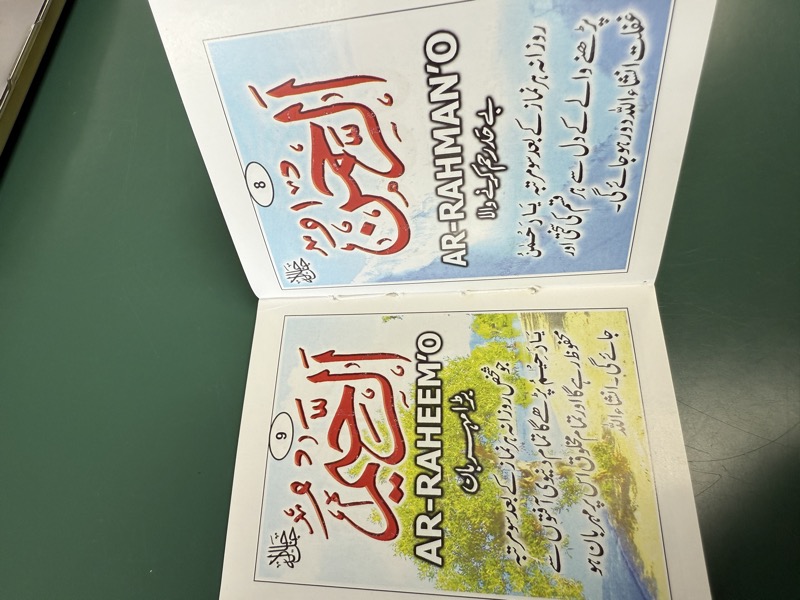 8
جل جلالہ
الرَّحْمٰنُ
AR-RAHMAN'O
بے حد رحم کرنے والا
روزانہ ہر نماز کے بعد سو مرتبہ یَا رَحْمٰنُ
پڑھنے والے کے دل سے ہر قسم کی سختی اور
غفلت انشاء اللہ دور ہو جائے گی۔
9
جل جلالہ
الرَّحِيْمُ
AR-RAHEEM'O
بڑا مہربان
جو شخص روزانہ ہر نماز کے بعد سو مرتبہ
یَا رَحِیْمُ پڑھے گا تمام دنیوی آفتوں سے
محفوظ رہے گا اور تمام مخلوق اس پر مہربان ہو
جائے گی۔ انشاء اللہ